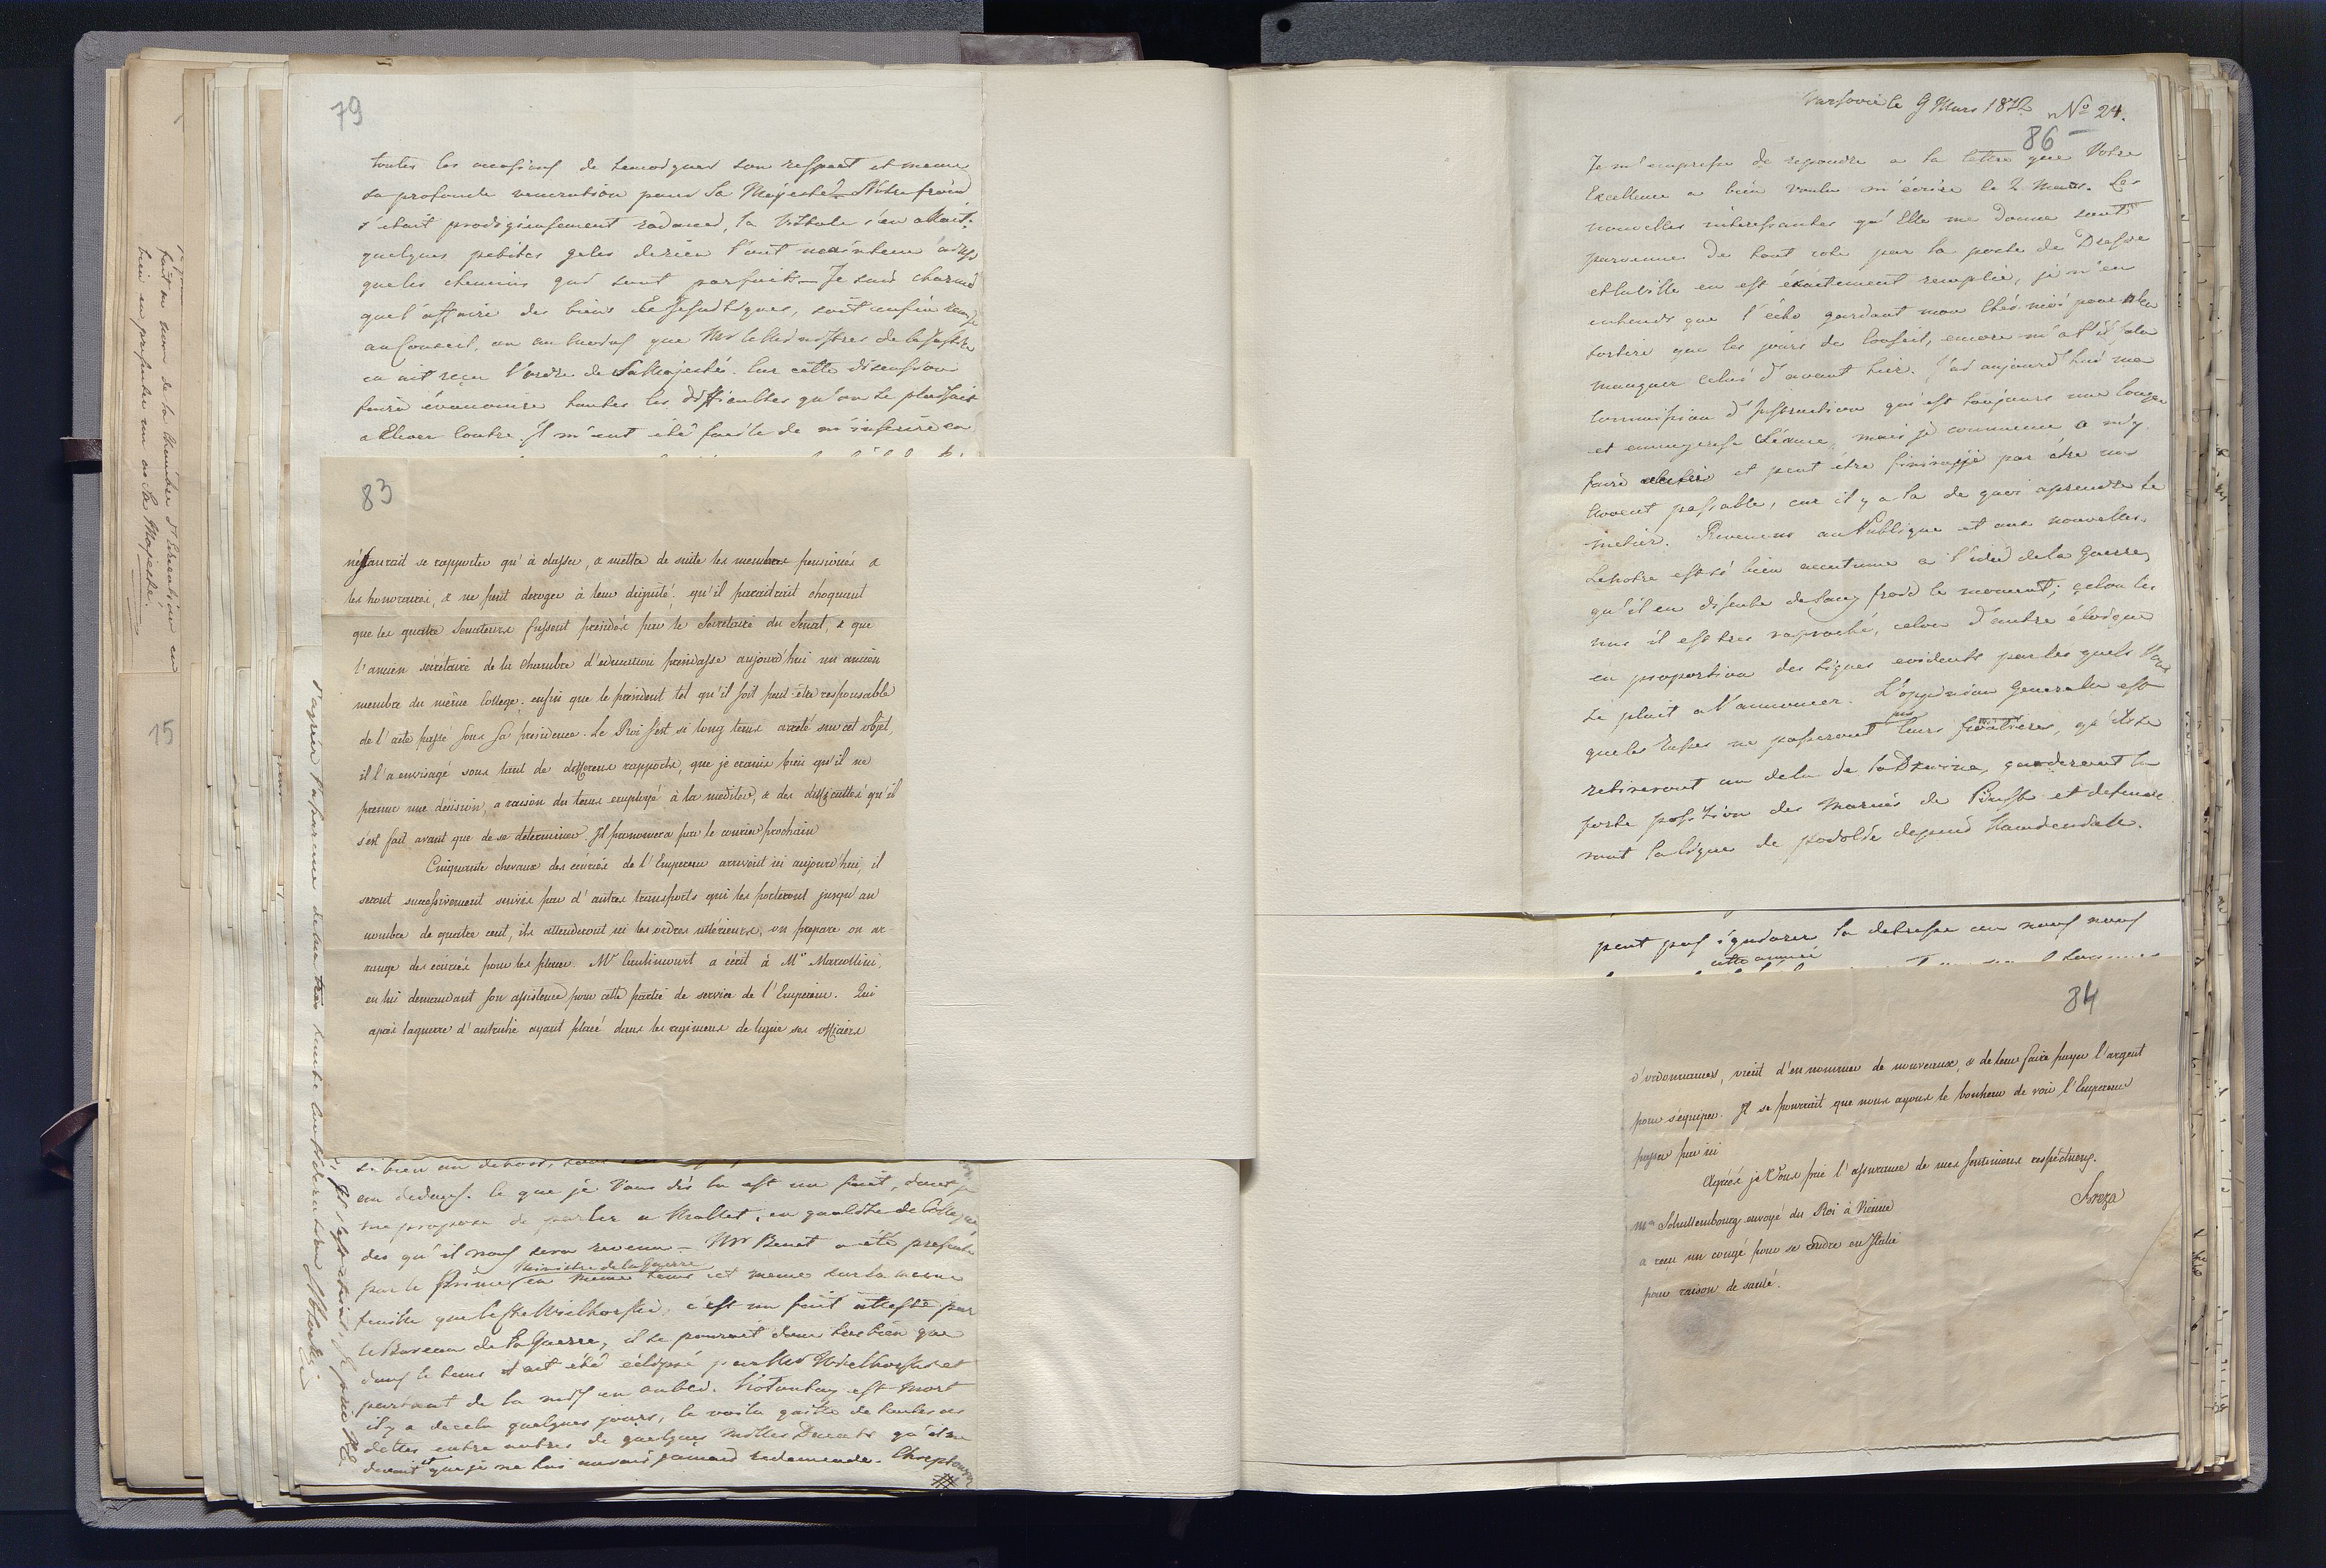 79
toutes les occasions de temoigner son respect et meme
sa profonde veneration pour Sa Majesté? Notre froid
s'etait prodigieusement radouci, la Vistule s'en allait.
quelques petites gelés derier l'ont maintenu ainsi
que les chemins qui sont parfaits — Je suis charmé
que l'affaire des biens Exjesuitiques, soit enfin
au Conseil, on au moins que Mr le Ministres de la Justice
en ait reçu l'ordre de Sa Majesté. Car cette discussion
fera évanouir toutes les difficultes qu'on se plaisait
a Elever Contre. Il m'eut été facile de m'inserire en
83
ne saurait se rapporter qu'à dessu, & mettre de suite les membres pensionés a
les honoraires, & ne peut deroger à leur dignité. qu'il paraitrait choquant
que les quatre Senateurs fussent présidés par le Secretaire du Senat, & que
l'ancien secrétaire de la Chambre d'education présidasse aujourd'hui un ancien
membre du même College. enfin que le président tel qu'il soit peut être responsable
de l'acte passé sous sa présidence. Le Roi s'est si long tems arreté sur cet objet,
il l'a envisagé sous tant de differens rapports, que je crains bien qu'il ne
prenne une décision, a raison du tems employé à la mediter, & des difficultés qu'il
s'est fait avant que de se déterminer. Il prononcera par le courier prochain
Cinquante chevaux des écuries de l'Empereur arrivent ici aujourd'hui, il
seront successivement suivis par d'autres transports qui les porteront jusqu'au
nombre de quatre cent, ils attenderont ici les ordres ultérieurs, on prepare on ar-
range des écuries pour les placer. Mr Caulincourt a écrit à Mr Marcollini,
en lui demandant son assistence pour cette partie de service de l'Empereur. Qui
après la guerre d'autriche ayant placé dans les regimens de ligne ses officiers
si bien au dehors,
au dedans. Ce que je Vous dis la est un fait, dont je
me propose de parler a Mallet, en qualité de Collegue,
des qu'il nous sera revenu — Mr Benet a été presenté
Ministre de la Guerre
par le Prince en meme tems et meme sur la meme
feuille que le Cte Wielhorski, c'est un fait attesté par
le Bureau de la Guerre, il se pourrait donc tres bien que
dans le tems il ait été éclipsé par Mr Wielhorski et
partant de la mis en oubli. est mort
il y a de cela quelques jours, le voila quitte de toutes ses
dettes entre autres de quelques milles Ducats qu'il me
devait et que je ne lui aurais jamais redemendé.
fait au nom de la Chambre d'Education en
lieu en presenter un a Sa Majesté.
15
d'agréer l'assurance de ma tres haute Consideration
Varsovie le 9 Mars 1812 No 24.
86
Je m'empresse de repondre a la lettre que Votre
Excellence a bien voulu m'écrire le 2 Mars. Les
nouvelles interessantes qu'Elle me donne sont
parvenues de tout coté par la poste de Dresde
et la ville en est éxactement remplie, je n'en
entends que l'écho gardant mon Chés moi pour n'en
sortire que les jours de Conseil, encore m'a t'il falu
manquer celui d'avant hier. J'ai aujourd'hui une
Commission d'Instruction qui est toujours une longue
et ennuyeuse séance, mais je commence a m'y
faire et peut étre finiraije par étre un
savant passable, car il y a la de quoi aprendre le
métier. Revenons au Publique et aux nouvelles.
Le notre est si bien accoutumé a l'idée de la Guerre,
qu'il en discute de sang froid le moment; selon les
uns il est tres raproché, celon d'autre éloigné
en proportion des signes evidents par les quels Vous
se plait a l'annoncer. L'oppinion Generale est
que les Russes ne passeront pas leurs frontieres, qu'ils se
retireront au dela de la Dzwina, garderont la
forte position des Marais de Pinsk et defende-
ront la ligne de Podolie depuis Kamdendalk.
peut pas ignorer la detresse ou nous nous
cette année
84
d'ordonnances, vient d'en nommer de nouveaux, & de leur faire payer l'argent
pour s'equiper. Il se pourrait que nous ayons le bonheur de voir l'Empereur
passer par ici
Agréés je Vous prie l'assurance de mes sentimens respectueux.
Breza
Mr Schullembourg envoyé du Roi à Vienne
a reçu un congé pour se rendre en Italie
pour raison de santé.